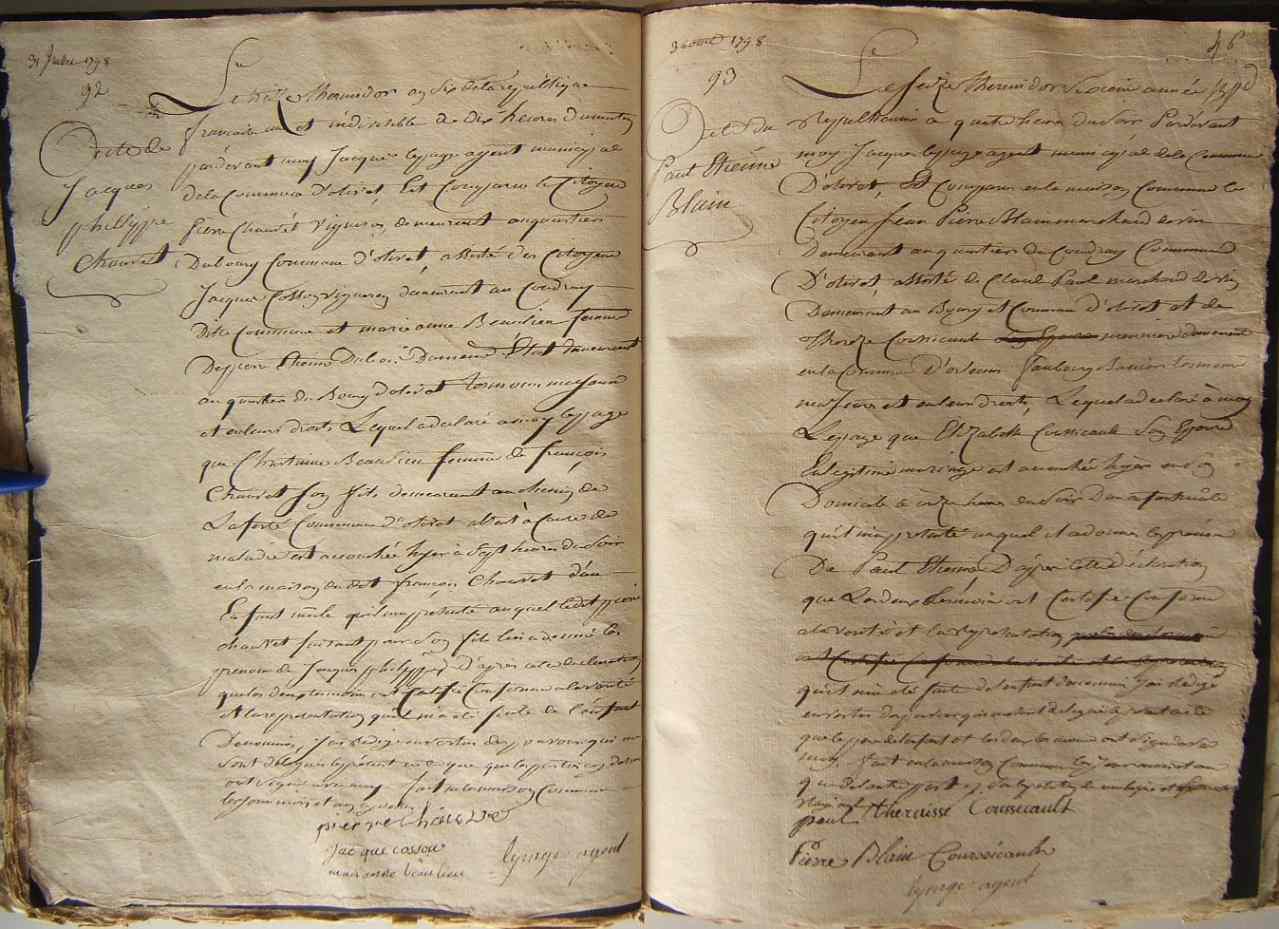 31 Juillet 1798
92
acte de
Jacques
philippe
Chauvet
Le treize thermidor an Six de la republique
francaise une et indivisible a dix heures du matin
pardevant moy Jacques lepage agent municipal
de la Commune d'olivet, Est Comparu le Citoyen
Pierre Chauvet Vigneron demeurant au quartier
Du bourg Commune d'olivet, assisté des Citoyens
Jacques Cosson vigneron demeurant au Coudray
dite Commune et marie anne Beaulieu femme
De pierre Etienne Dubois demeurant
au quartier du Bourg d'olivet temoins majeurs
et en leurs droits Lequel a declaré a moy lepage
que Christinne Beaulieu femme de françois
Chauvet Son fils demeurant au chemin de
La ferté Commune d'olivet absent a Cause de
maladie est accouchée hyer a Sept heures du Soir
en la maison dudit françois Chauvet d'un
Enfant mâle qu'il m'a presenté auquel ledit pierre
chauvet faisant pour Son fils lui a donné les
prenoms de Jacques philippe, D'apres cette declaration
que les deux temoins ont Certifié Conforme a la verité
et la representation qui m'a été faite de l'enfant
Denommé, J'ai redigé en vertu des pouvoirs qui me
sont delegués le present acte que
ont signé avec moy fait en la maison Commune
les jour mois et an
pierre Chauvet
Jacque cosson
marianne beaulieu
lepage agent
3 aout 1798
46
93
acte de
Paul Etienne
Blain
Le Seize thermidor Sixieme année
Republicaine a quatre heures du Soir Pardevant
moy Jacques lepage agent municipal de la Commune
D'olivet, Est Comparu en la maison Commune le
Citoyen Jean Pierre Blain marchand de vin
demeurant au quartier du Coudray Commune
D'olivet, assisté de Claude Paul marchand de vin
Demeurant au Bourg et Commune d'olivet et de
therèze Coursicault demeurant
en la Commune D'orleans faubourg temoins
majeurs et en leurs droits, Lequel a declaré à moy
Lepage que Elizabeth Coursicault Son Epouse
En legitime mariage est accouchée hyer en Son
Domicile a onze heures du Soir d'un enfant mâle
qu'il m'a presenté auquel il a donné les prenoms
De Paul Etienne D'apres cette déclaration
que Les deux temoins ont Certifié Conforme
a la verité et la representation
qui m'a été faite de l'enfant denommé, J'ai redigé
en vertu des pouvoirs qui me sont delegués le present acte
que le pere de l'enfant et les deux temoins ont signé avec
moy, fait en la maison Commune les jour mois et an
paul theraisse Coursicault
Pierre Blain Coursicault
lepage agent